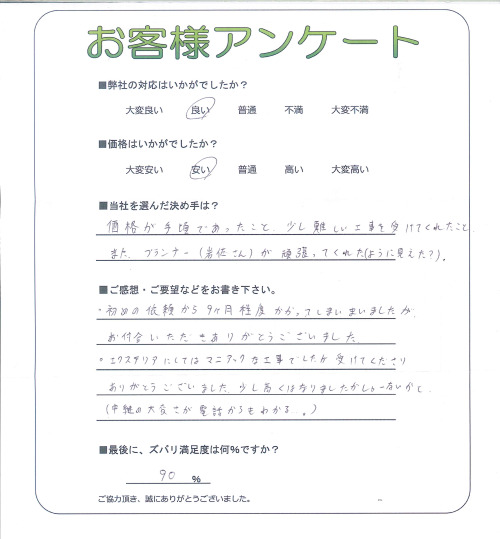 お客様アンケート
■弊社の対応はいかがでしたか？
大変良い 良い 普通 不満 大変不満
■価格はいかがでしたか？
大変安い 安い 普通 高い 大変高い
■当社を選んだ決め手は？
価格が手頃であったこと、少し難しい工事を受けてくれたこと
また、プランナー（岩佐さん）が頑張ってくれた(ように見えた？)。
■ご感想・ご要望などをお書き下さい。
・初めの依頼から9ヶ月程度かかってしまいましたが、
お付合いただきありがとうございました。
・エクステリアにしてはマニアックな工事でしたが受けてくださり
ありがとうございました。少し高くはなりましたがしょーないかと
(中継の大変さが電話からもわかる。。)
■最後に、ズバリ満足度は何％ですか？
90 ％
ご協力頂き、誠にありがとうございました。